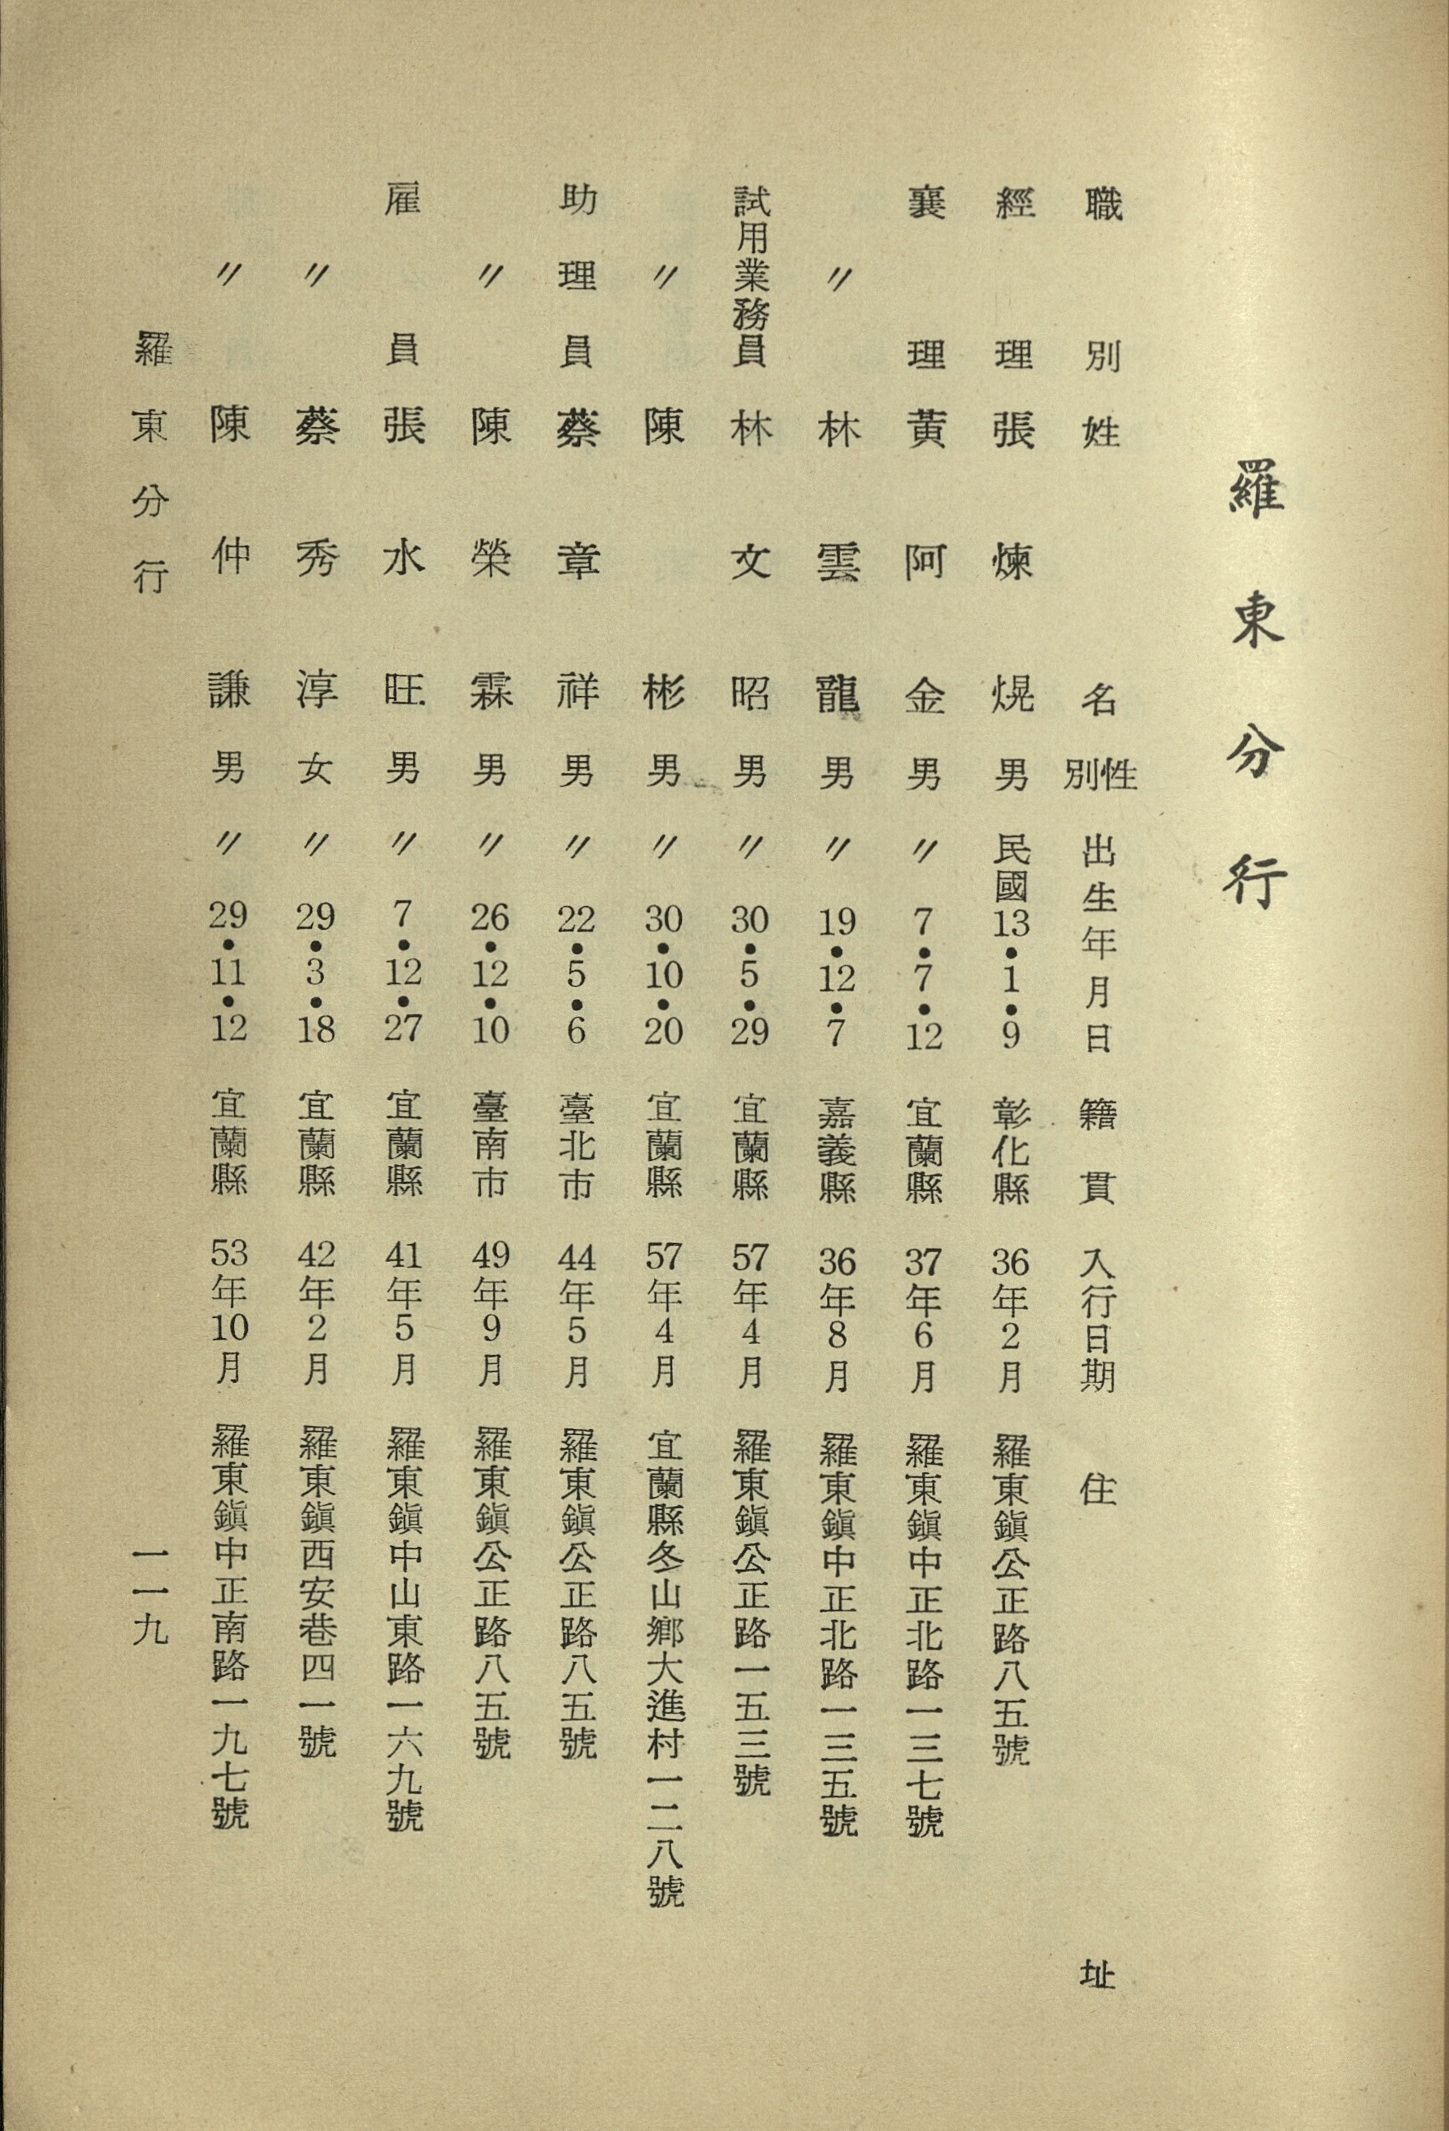 羅東分行
職別 姓名 性別 出生年月日 籍貫 入行日期 住址
經理 張煉熀 男 民國13•1•9 彰化縣 36年2月 羅東鎭公正路八五號
襄理 黃阿金 男 〃7•7•12 宜蘭縣 37年6月 羅東鎭中正北路一三七號
〃 林雲龍 男 〃19•12•7 嘉義縣 36年8月 羅東鎭中正北路一三五號
試用業務員 林文昭 男 〃30•5•29 宜蘭縣 57年4月 羅東鎭公正路一五三號
〃 陳彬 男 〃30•10•20 宜蘭縣 57年4月 宜蘭縣冬山鄉大進村一二八號
助理員 蔡章祥 男 〃22•5•6 臺北市 44年5月 羅東鎭公正路八五號
〃 陳榮霖 男 〃26•12•10 臺南市 49年9月 羅東鎭公正路八五號
雇員 張水旺 男 〃7•12•27 宜蘭縣 41年5月 羅東鎭中山東路一六九號
〃 蔡秀淳 女 〃29•3•18 宜蘭縣 42年2月 羅東鎭西安巷四一號
〃 陳仲謙 男 〃29•11•12 宜蘭縣 53年10月 羅東鎭中正南路一九七號
羅東分行 一一九